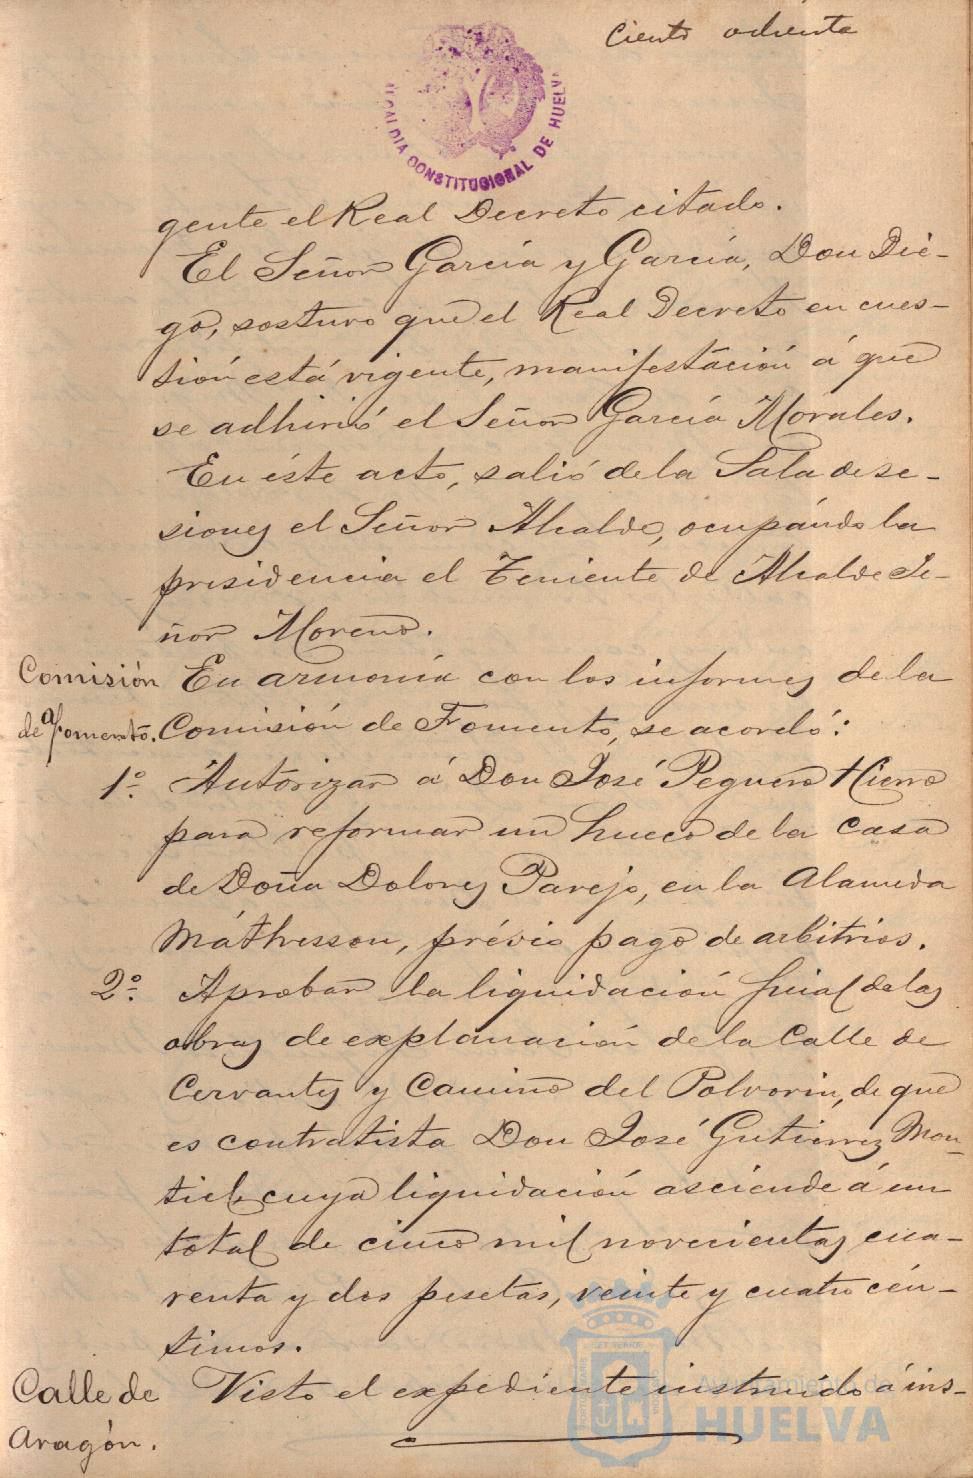 Ciento ochenta
ALCALDIA CONSTITUCIONAL DE HUELVA
gente el Real Decreto citado.
El Señor García y García, Don Die-
go, sostuvo que el Real Decreto en cues-
tión está vigente, manifestación á que
se adhirió el Señor García Morales.
En éste acto, salió de la Sala de se-
siones el Señor Alcalde, ocupándo la
presidencia el Teniente de Alcalde Se-
ñor Moreno.
Comisión
de Fomento.
En armonía con los informes de la
Comisión de Fomento, se acordó:
1º. Autorizar á Don José Peguero Hierro
para reformar un hueco de la casa
de Doña Dolores Parejo, en la Alameda
Máthesson, prévio pago de arbitrios.
2º. Aprobar la liquidación final de las
obras de explanación de la Calle de
Cervantes y Camino del Polvorin, de que
es contratista Don José Gutierrez Mon-
tiel, cuya liquidación asciende á un
total de cinco mil novecientas cua-
renta y dos pesetas, veinte y cuatro cén-
timos.
Calle de
Aragón.
Visto el expediente instruido á ins-
Ayuntamiento de
HUELVA